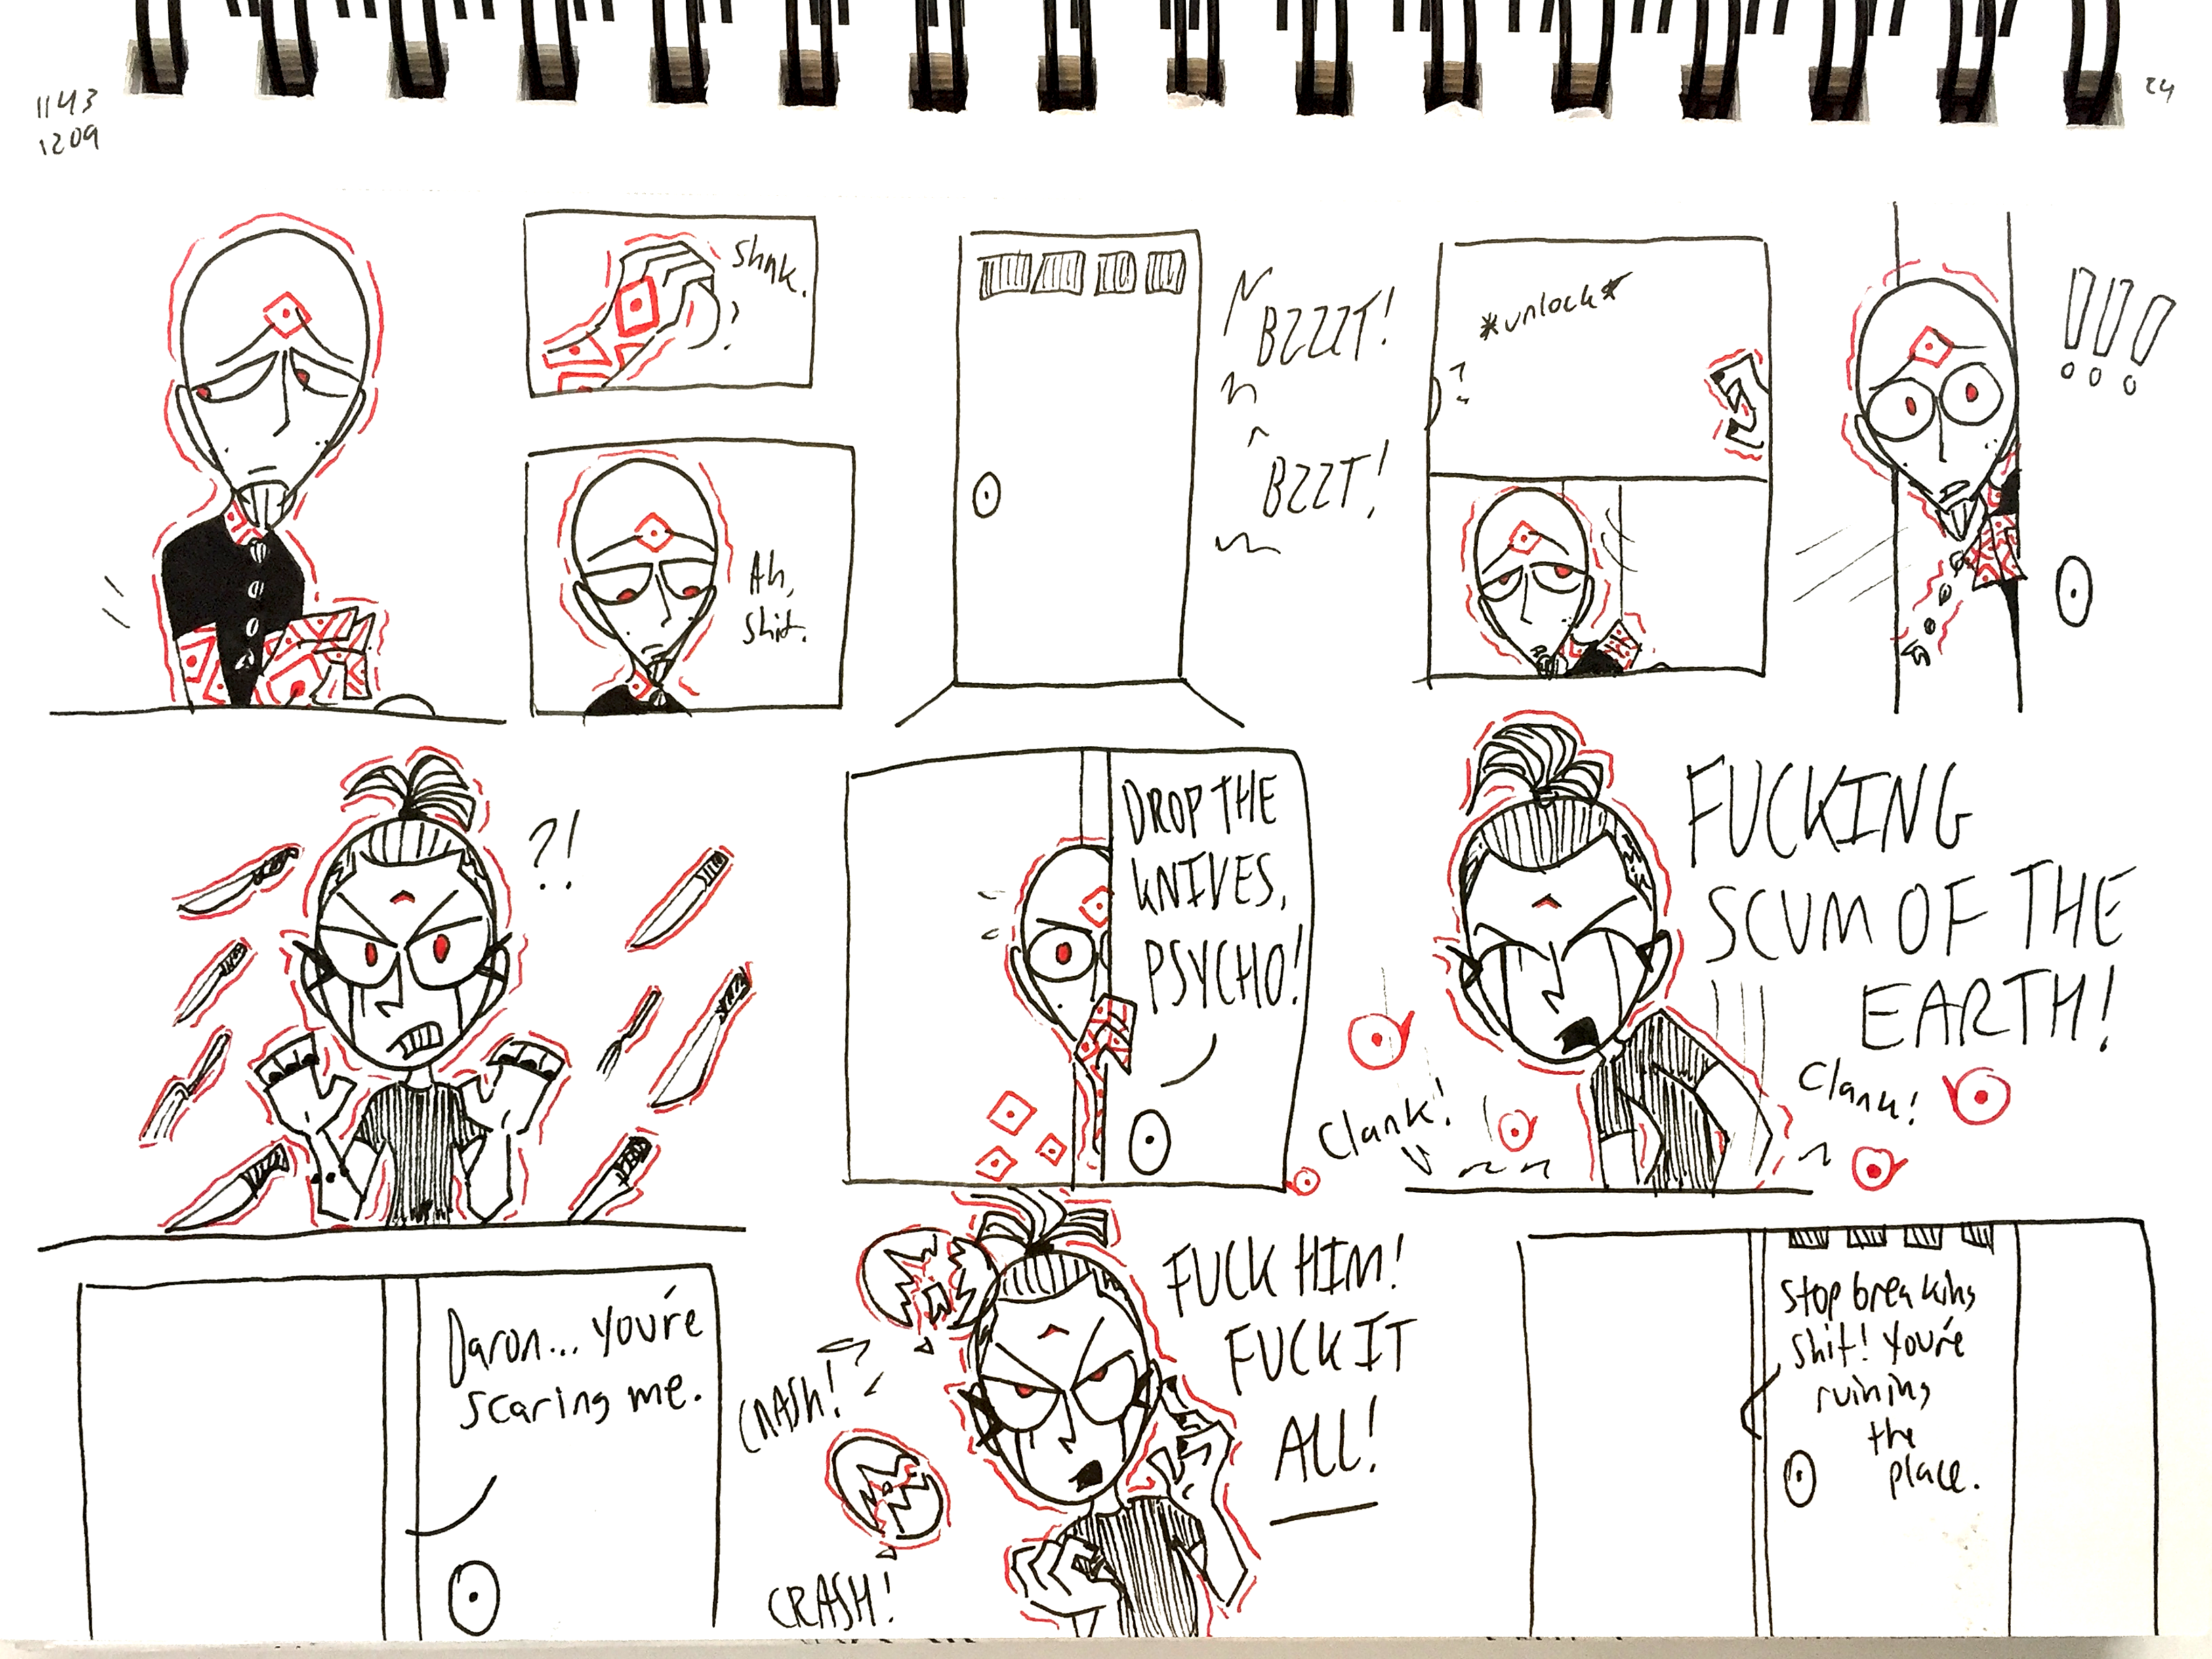 1143
1209
24
Shnk.
?
Ah,
shit.
BZZZT!
BZZT!
*unlock*
!!!
?!
DROP THE
KNIVES,
PSYCHO!
FUCKING
SCUM OF THE
EARTH!
Clank!
Clank!
Daron... you're
scaring me.
CRASH!
CRASH!
FUCK HIM!
FUCK IT
ALL!
Stop breaking
shit! You're
ruining
the
place.